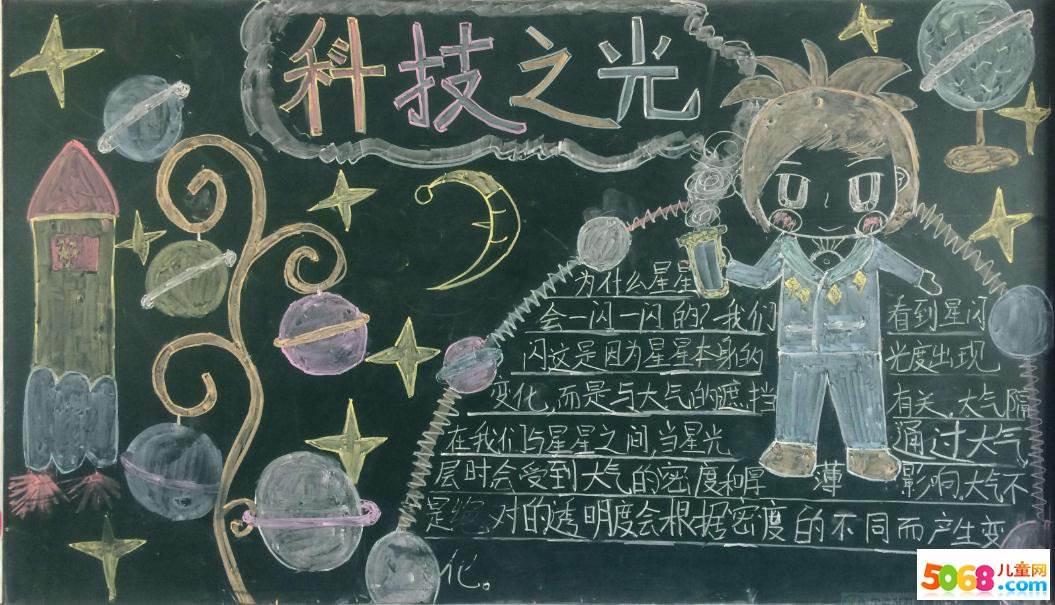 科技之光
为什么星星
会一闪一闪的?我们 看到星闪
闪这是因为星星本身的 光度出现
变化,而是与大气的遮挡 有关,大气隔
在我们与星星之间,当星光 通过大气
层时会受到大气的密度和厚 薄 影响,大气不
是 对的透明度会根据密度的不同而产生变
化。
5068儿童网
.com